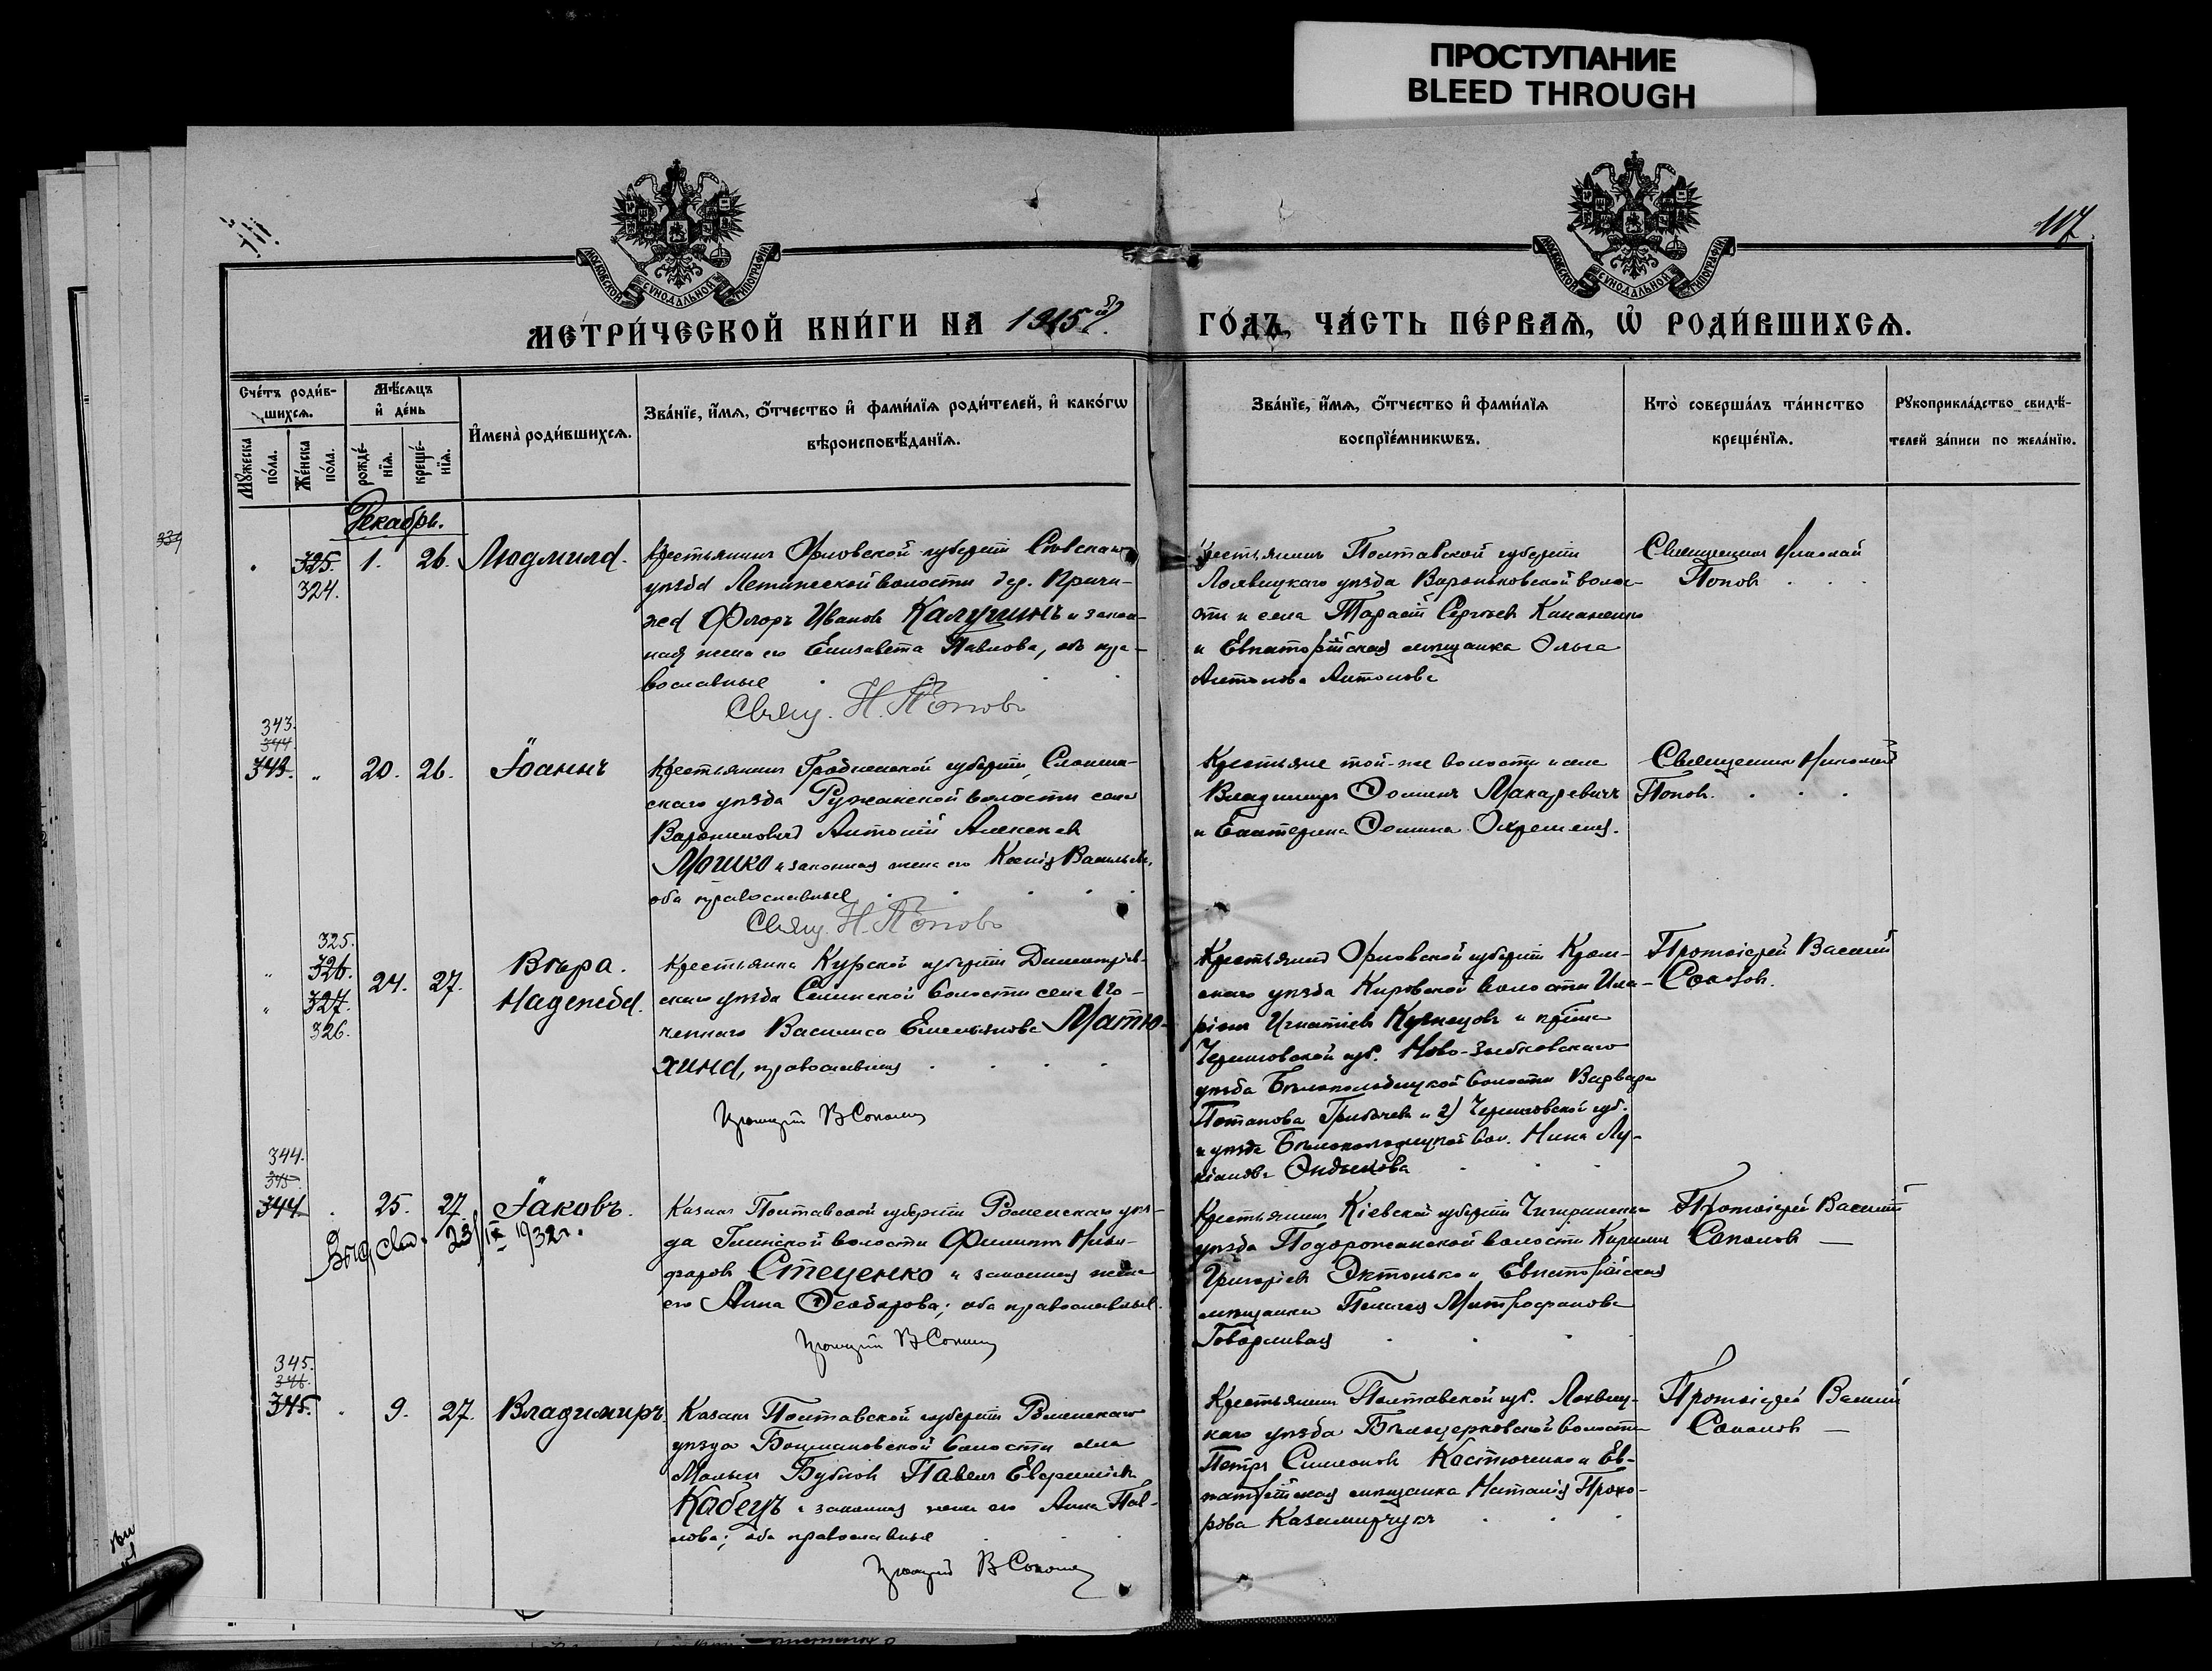 ПРОСТУПАНИЕ
BLEED THROUGH
117
МОСКОВСКОЙ СѴНОДАЛЬНОЙ ТИПОГРАФІИ
МОСКОВСКОЙ СѴНОДАЛЬНОЙ ТИПОГРАФІИ
МЕТРИ́ЧЕСКОЙ КНИ́ГИ НА 1915й
ГО́ДЪ, ЧА́СТЬ ПЕ́РВАѦ, Ѽ РОДИ́ВШИХСѦ.
Сче́тъ роди́в-
шихсѧ.
Мꙋ́жеска
по́ла.
Же́нска
по́ла.
Мѣ́сѧцъ
и҆ де́нь
рожде́-
нїѧ.
креще́-
нїѧ.
И҆мена̀ роди́вшихсѧ.
Зва́нїе, и҆́мѧ, ѻ҆́тчество и҆ фами́лїѧ роди́телей, и҆ како́гѡ
вѣроисповѣ́данїѧ.
Зва́нїе, и҆́мѧ, ѻ҆́тчество и҆ фами́лїѧ
воспрїе́мникѡвъ.
Кто̀ соверша́лъ та́инство
креще́нїѧ.
Рꙋкоприкла́дство свидѣ́-
телей за́писи по жела́нїю.
Декабрь.
325.
324.
1.
26.
Людмила.
Крестьянинъ Орловской губерніи Сѣвскаго
уѣзда волости дер.
Флоръ Ивановъ Калугинъ и закон-
ная жена его Елизавета Павлова, оба пра-
вославные
Свящ. Н. Поповъ
Крестьянинъ Полтавской губерніи
Лохвицкаго уѣзда Вороньковской волос-
ти и села Тарасій Сергѣевъ
и Евпаторійская мѣщанка Ольга
Антонова Антонова
Священникъ Николай
Поповъ
343.
344.
343.
20.
26.
Іоаннъ
Крестьянинъ Гродненской губерніи, Слоним-
скаго уѣзда Ружанской волости села
Антоній Алексѣевъ
Мошко и законная жена его Ксенія Васильева,
оба православные
Свящ. Н. Поповъ
Крестьяне той-же волости и села
Владимиръ Ѳоминъ Макаревичъ
и Екатерина Ѳомина
Священникъ Николай
Поповъ.
325.
326.
327.
326.
24.
27.
Вѣра.
Надежда.
Крестьянка Курской губерніи Дмитріев-
скаго уѣзда волости села
Василиса Емельянова Матю-
хина, православная
Протоіерей В Соколовъ
Крестьянинъ Орловской губерніи Кром-
скаго уѣзда Кировской волости Ила-
ріонъ Игнатіевъ Кузнецовъ и
Черниговской губ. Ново-Зыбковскаго
уѣзда волости Варвара
Потапова и 2) Черниговской губ.
и уѣзда вол. Нина Лу-
кіанова
Протоіерей Василій
Соколовъ.
344.
345.
344.
25.
27.
Іаковъ.
23/IX 1932г.
Казакъ Полтавской губерніи Роменскаго уѣз-
да Глинской волости Филиппъ Ники-
форовъ Стеценко и законная жена
его Анна Ѳеодорова; оба православные.
Протоіерей В Соколовъ
Крестьянинъ Кіевской губерніи Чигиринскаго
уѣзда Подорожанской волости Кириллъ
Григоріевъ и Евпаторійская
мѣщанка Пелагея Митрофанова
Говорливая
Протоіерей Василій
Соколовъ —
345.
346.
345.
9.
27.
Владимиръ.
Казакъ Полтавской губерніи Роменскаго
уѣзда волости села
Малыхъ Бубновъ Павелъ Евфиміевъ
Кобецъ и законная жена его Анна Пав-
лова; оба православные
Протоіерей В Соколовъ
Крестьянинъ Полтавской губ. Лохвиц-
каго уѣзда Бѣлоцерковской волости
Петръ Симеоновъ Костюченко и Ев-
паторійская мѣщанка Наталія Прохо-
рова Казимирчукъ
Протоіерей Василій
Соколовъ —